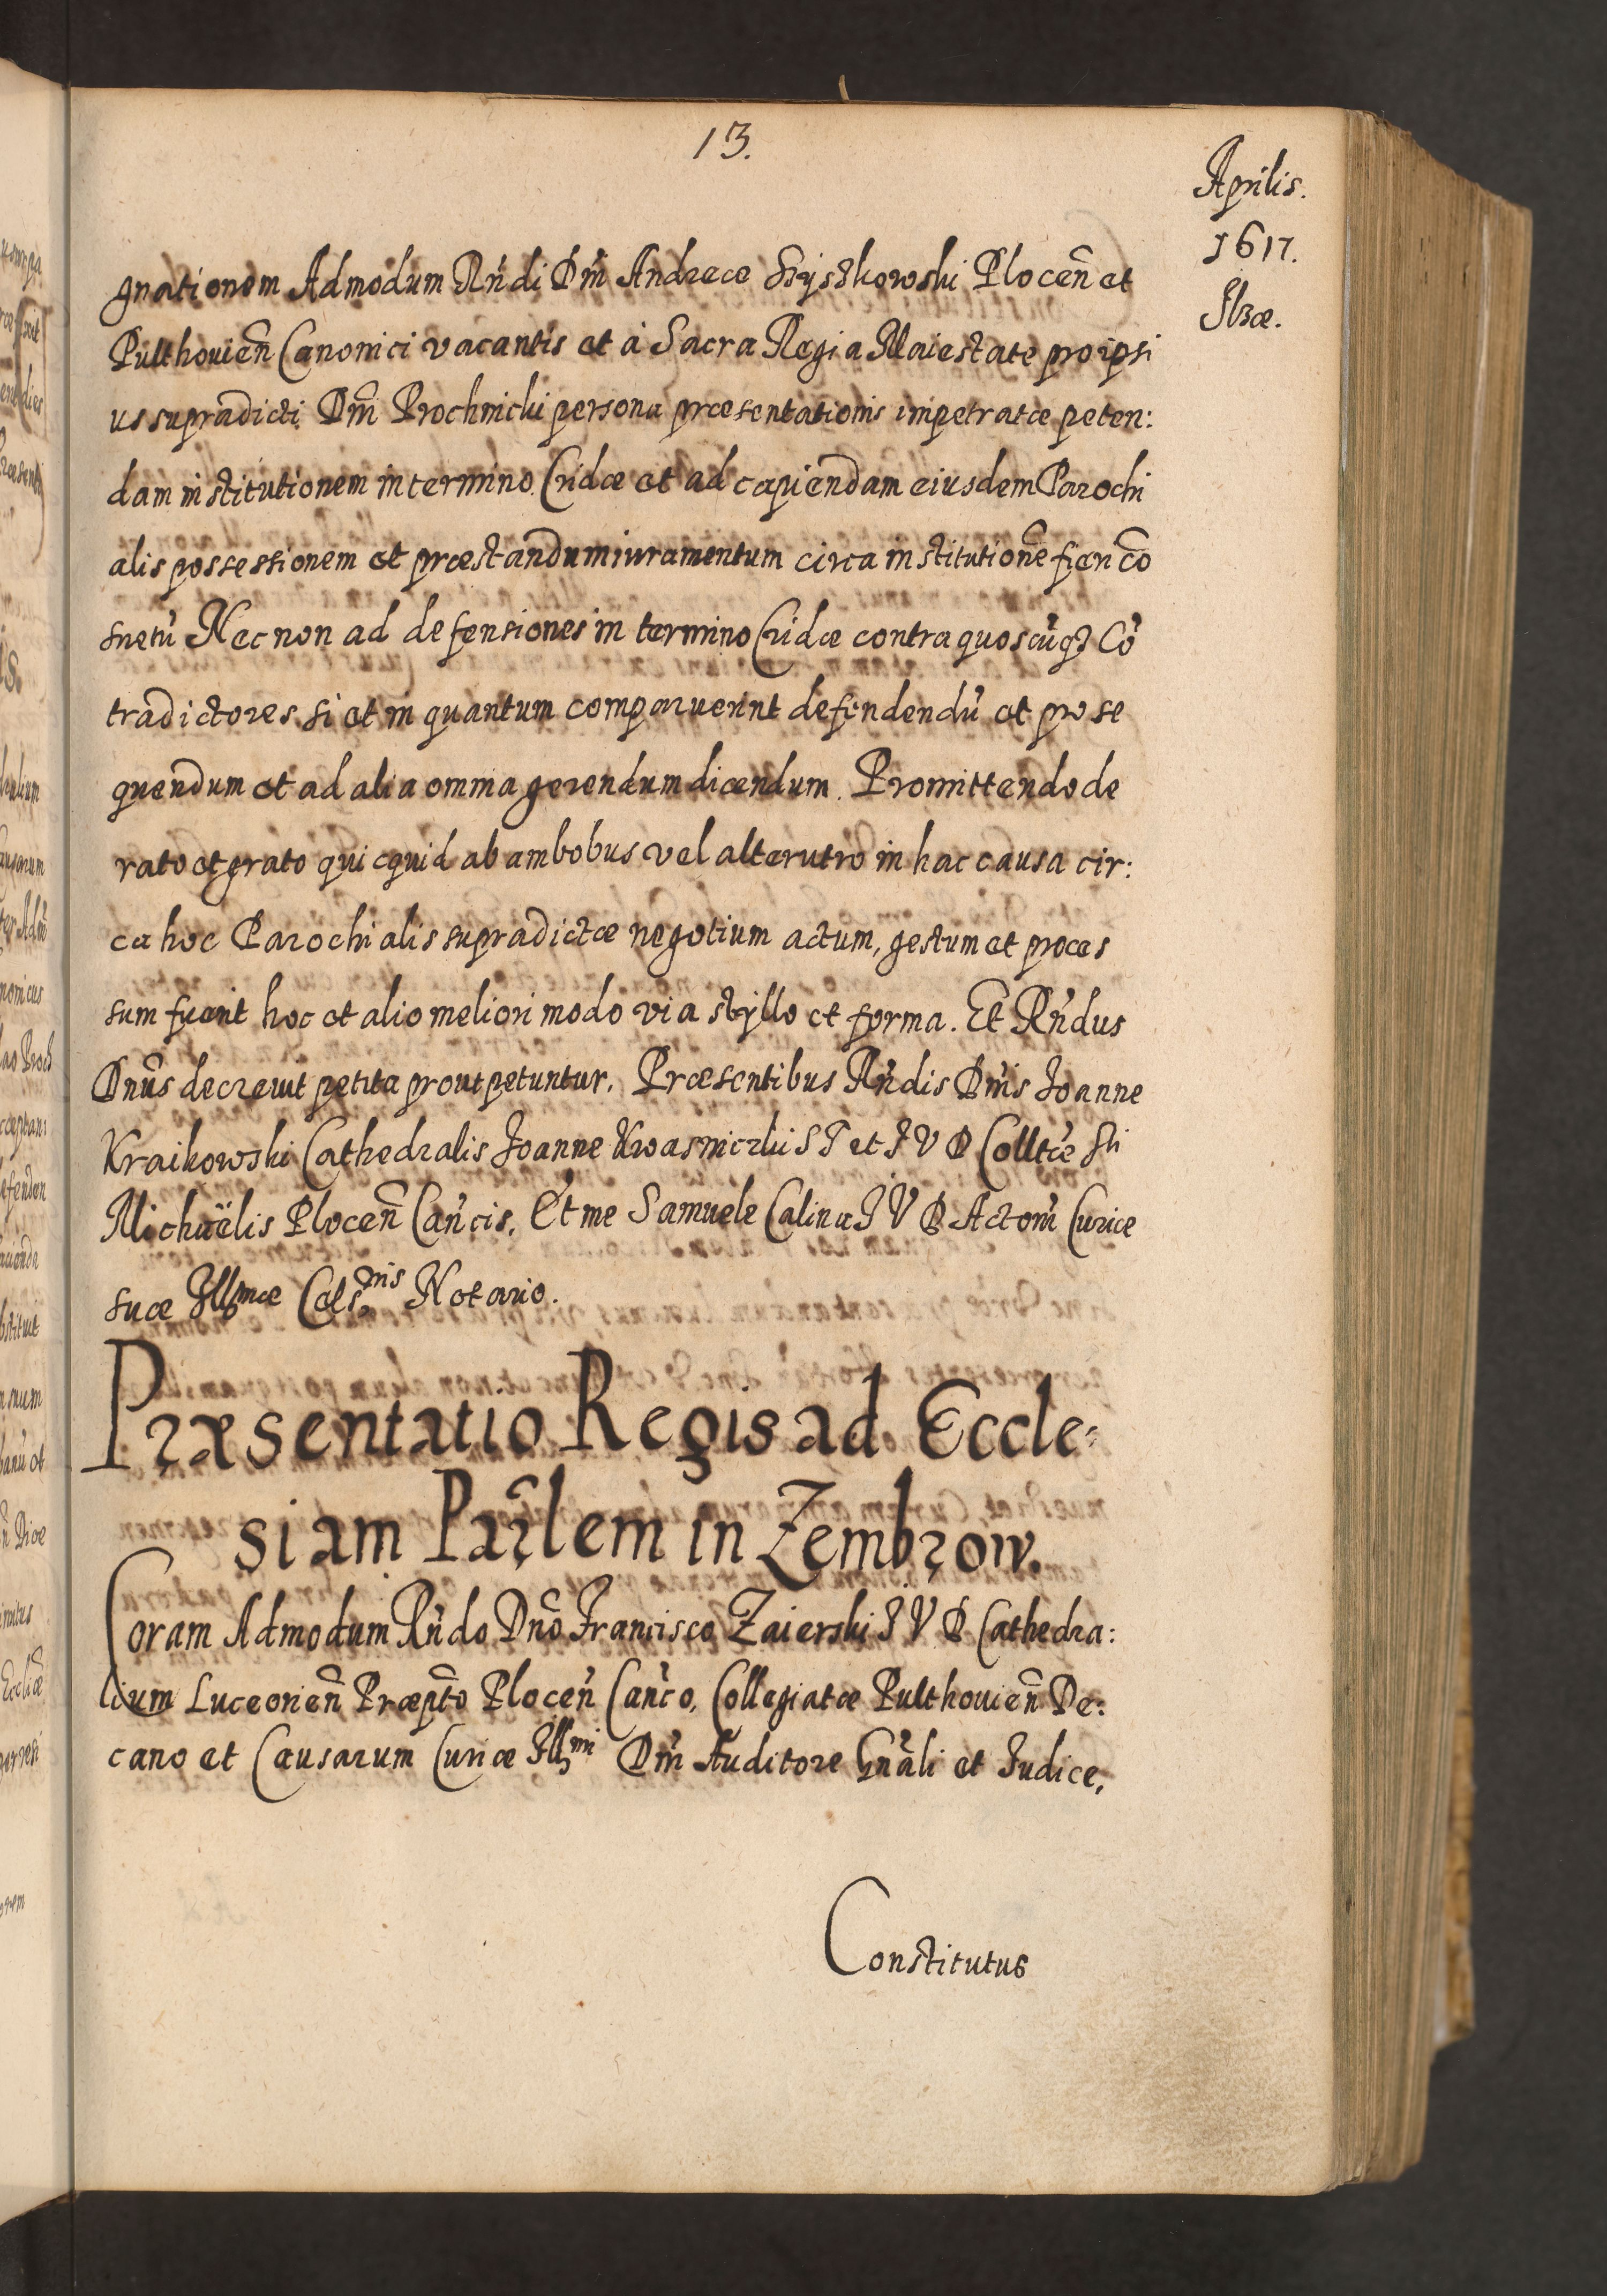 13.
Aprilis.
1617.
Ilzæ.
gnationem Admodum Rńdi Dnĩ Andreæ Szyszkowski Plocen̄ et
Pulthovien̄ Canonici vacantis et à Sacra Regia Maiestate pro ipsi
us supradicti Dnĩ Prochnicki persona præsentationis impetratæ peten:
dam institutionem in termino Cridæ et ad capiendam eiusdem Parochi
alis possessionem et præstandum iuramentum circa institutionē fieri cō
suetũ Nec non ad defensiones in termino Cridæ contra quoscũq3 Cõ
tradictores si et in quantum comparuerint defendendũ et prose
quendum et ad alia omnia gerendum dicendum. Promittendo de
rato et grato quicquid ab ambobus vel alterutro in hac causa cir:
ca hoc Parochialis supradictæ negotium actum, gestum et proces
sum fuerit hoc et alio meliori modo via styllo et forma. Et Rńdus
Dnũs decrevit petita prout petuntur. Præsentibus Rńdis Dnĩs Joanne
Kraikowski Cathedralis Joanne Kwasniczki S T et J V D Colltæ Sti
Michaëlis Plocen̄ Cańcis. Et me Samuele Calina J V D Actorũ Curiæ
suæ Illmæ Cels.nis Notario.
Præsentatio Regis ad Eccle:
siam Par̃lem in Zembrow.
Coram Admodum Rńdo Dnõ Francisco Zaierski J V D Cathedra:
lium Luceorien̄ Præpt̃o Plocen̄ Cańco, Collegiatæ Pulthovien̄ De:
cano et Causarum Curiæ Illmi Dnĩ Auditore Gnãli et Judice,
Constitutus